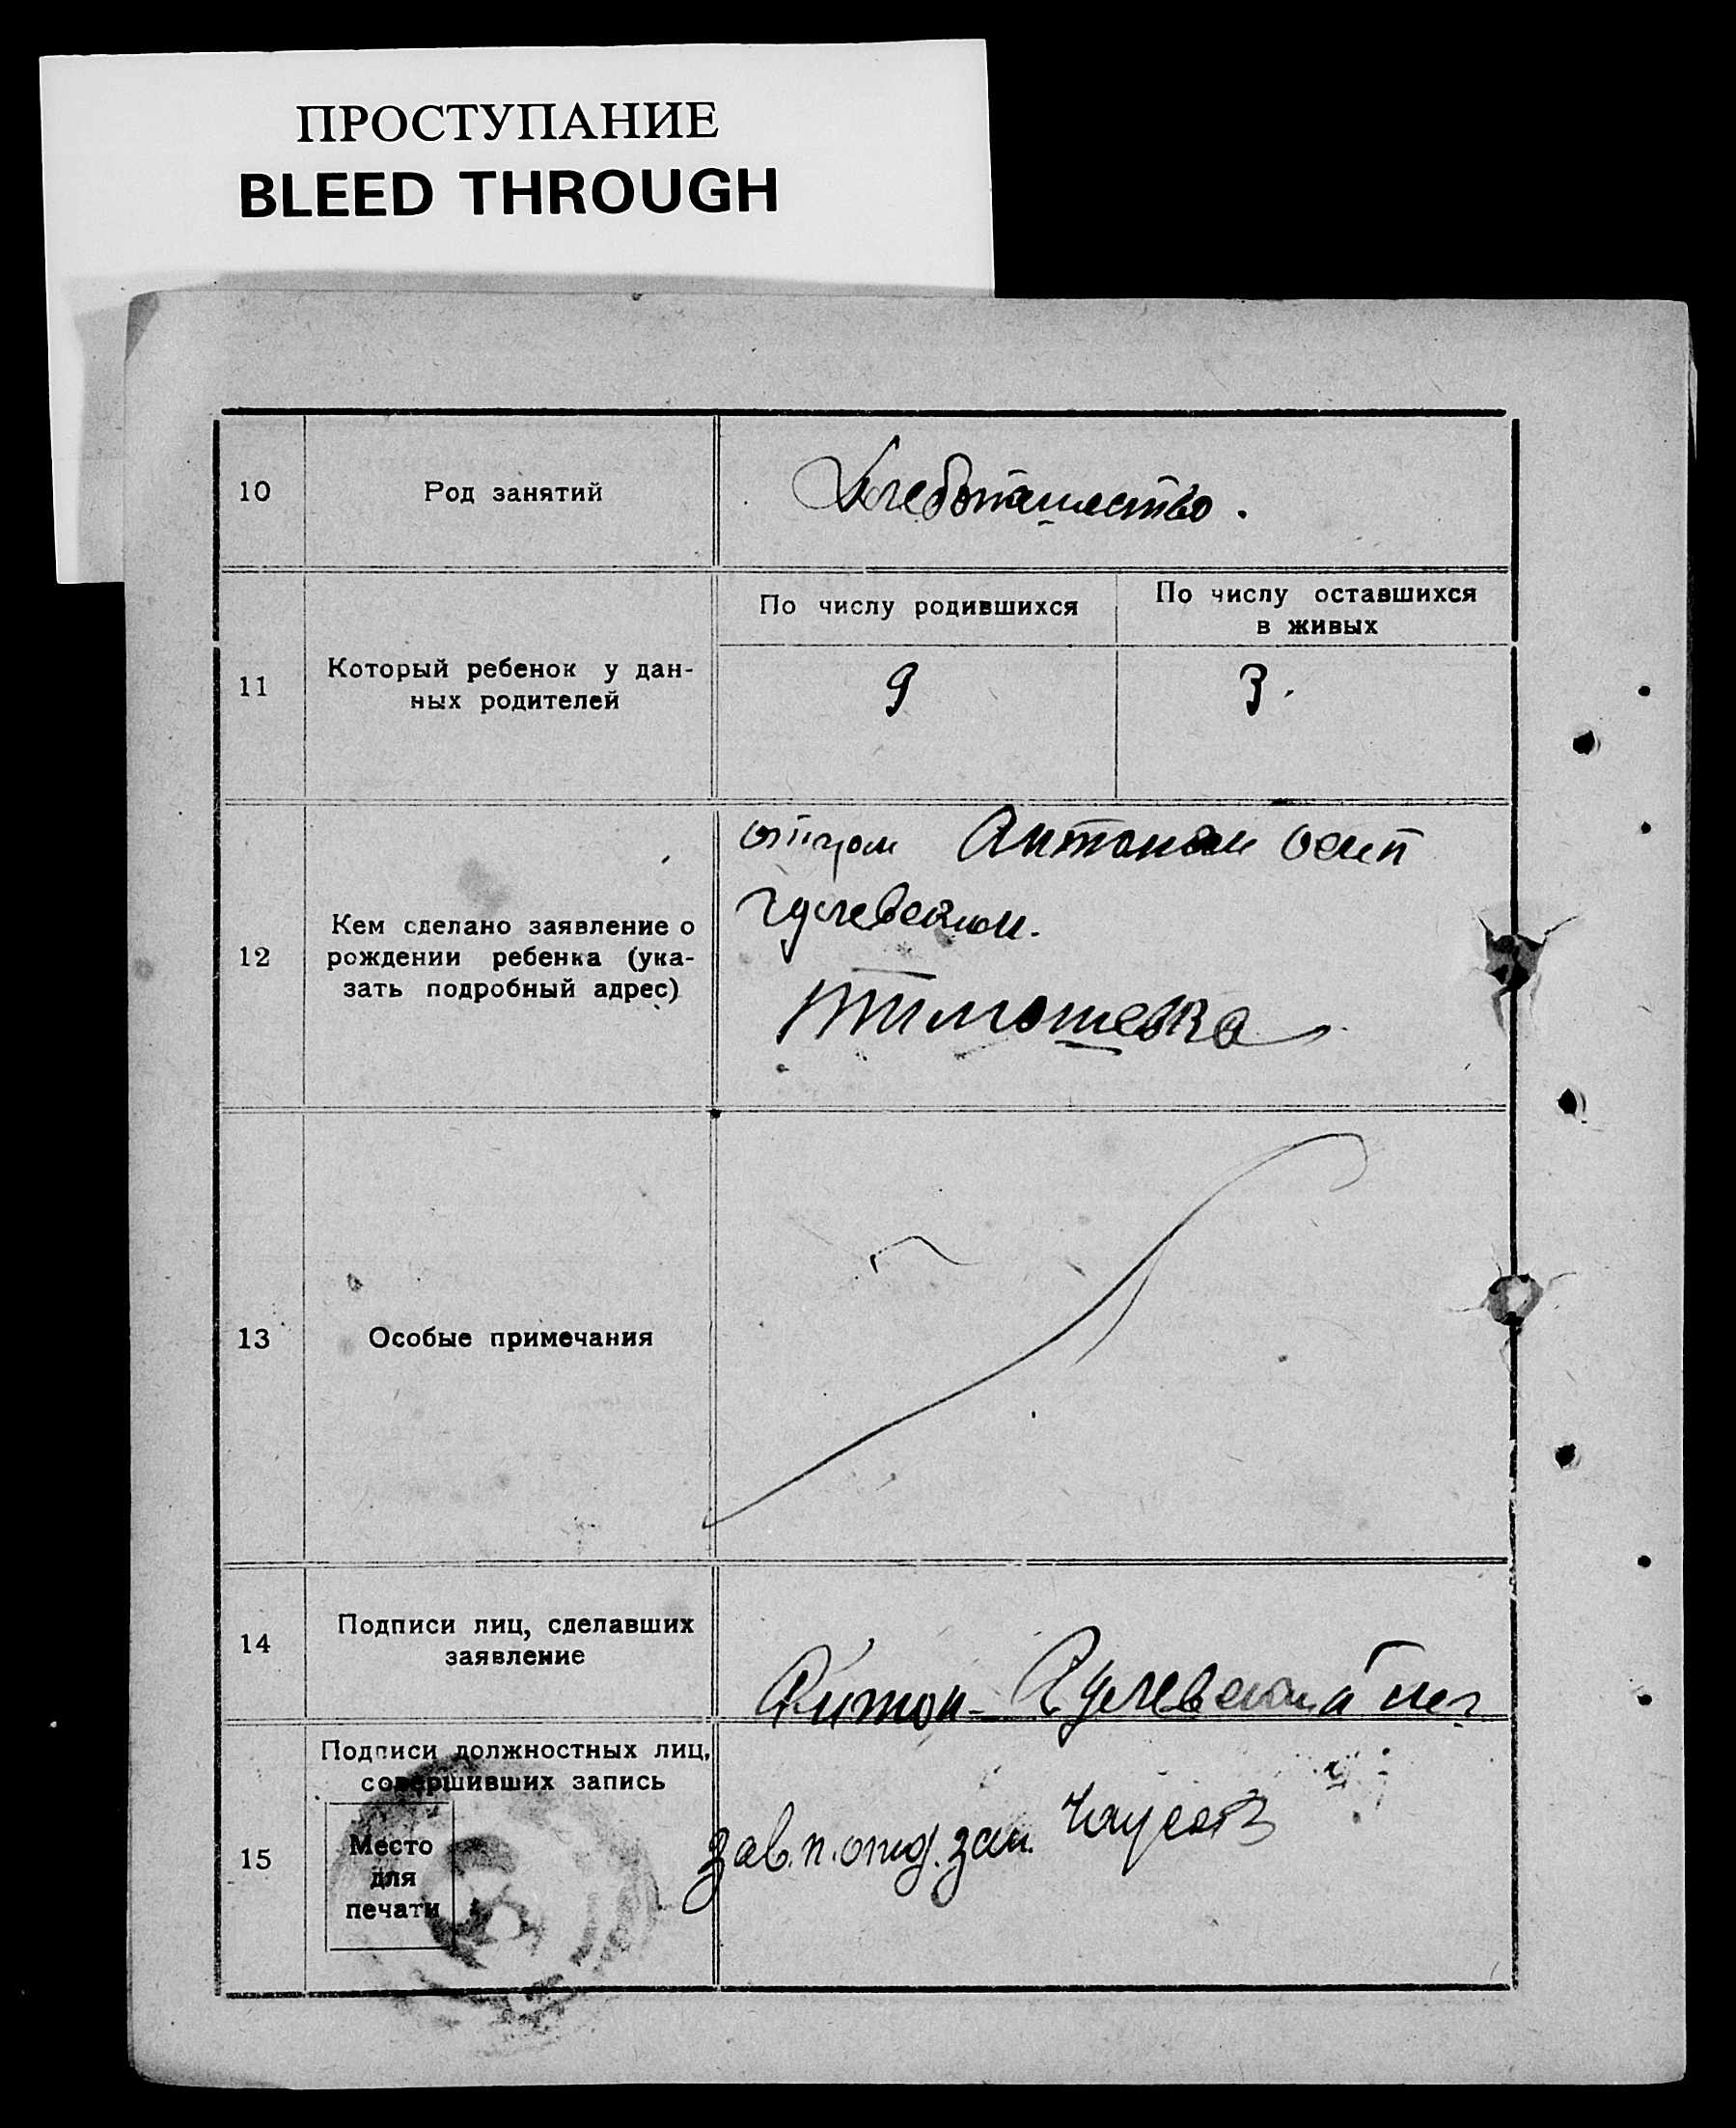 ПРОСТУПАНИЕ
BLEED THROUGH
10 Род занятий Хлебопашество.
По числу родившихся По числу оставшихся
в живых
11 Который ребенок у дан-
ных родителей 9 3.
отцом Антоном Осип
Гулевским.
12 Кем сделано заявление о
рождении ребенка (ука-
зать подробный адрес)
13 Особые примечания
14 Подписи лиц, сделавших
заявление
Антон Гулевский
Подписи должностных лиц,
совершивших запись
15 Место
для
печати
Зав. п. отд. заг.